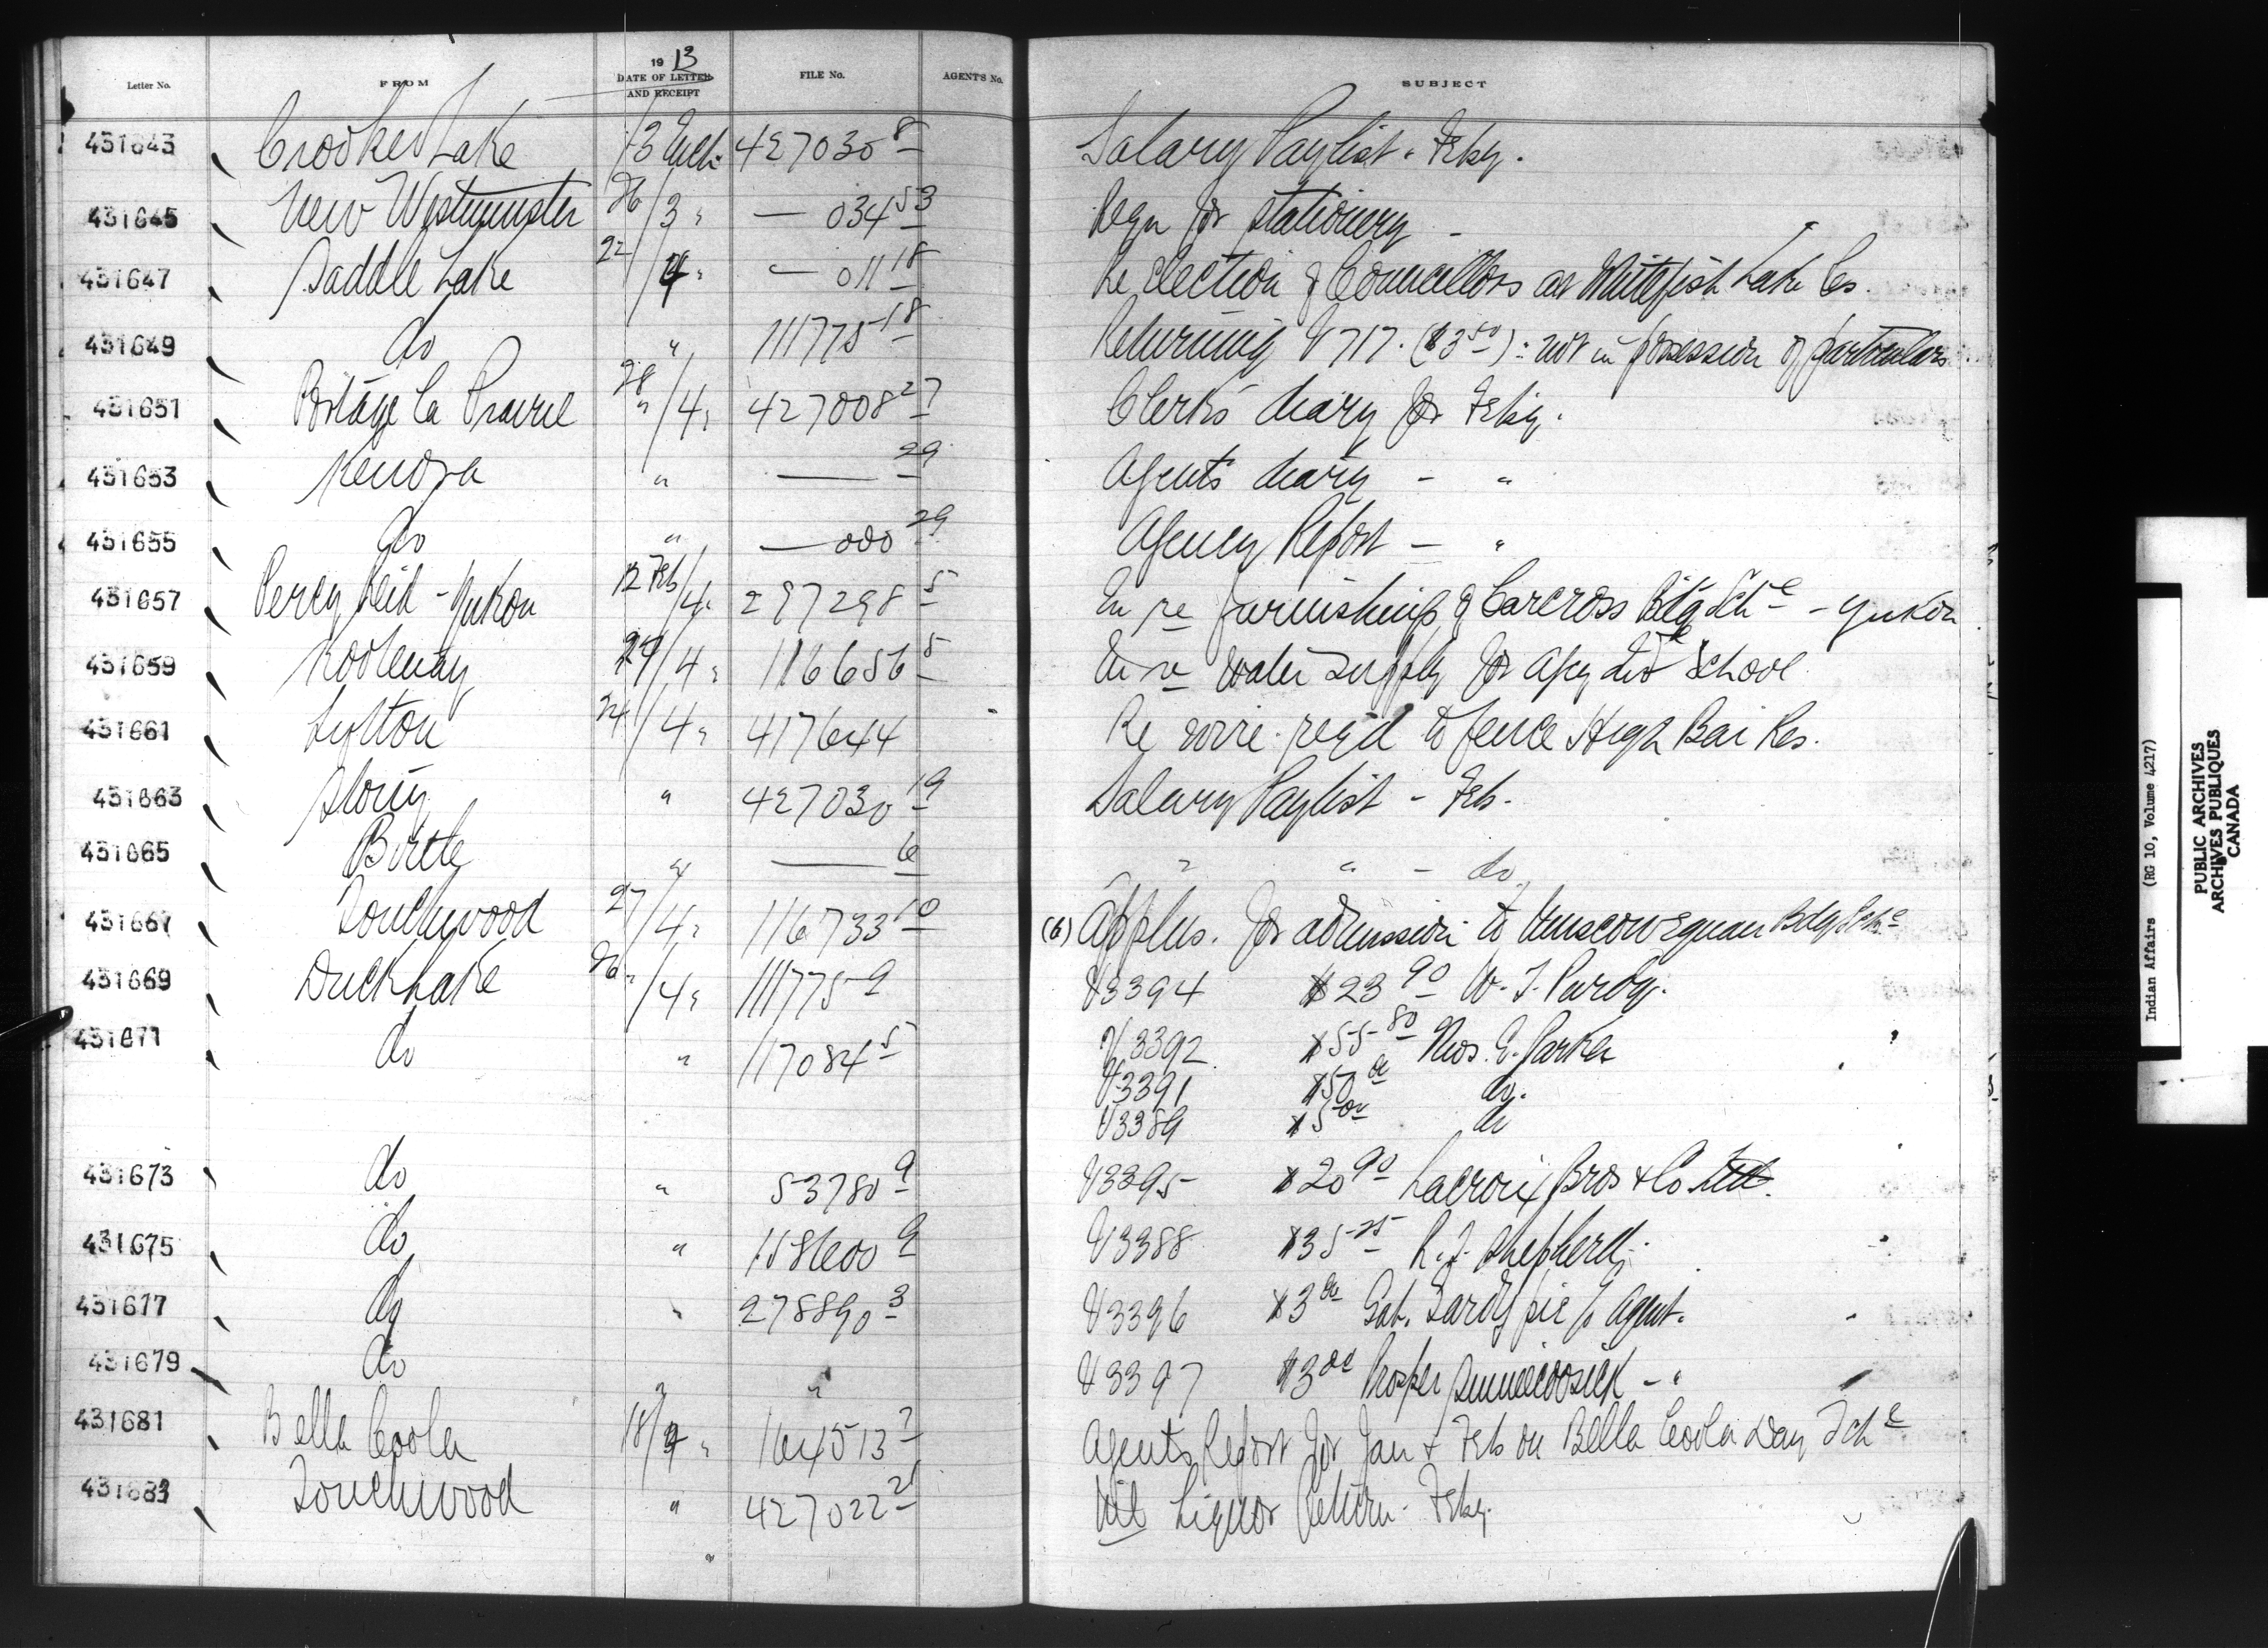 Letter No. FROM 1913 DATE OF LETTER AND RECEIPT FILE No. AGENT'S No. SUBJECT
431643 Crooked Lake /3 Mch. 427030 8 Salary Paylist - Feby.
431645 New Westminster 26/3 " — 034 53 Reqn for stationery -
431647 Saddle Lake 22/4 " — 011 18 Re election of Councillors at Whitefish Lake Res.
431649 do " 111775 18 Returning V717. ($3 50) : not in possession of particulars
431651 Portage la Prairie 28 "/4 " 427008 27 Clerk's diary for Feby.
431653 Kenora " — 29 Agent's diary - "
431655 do " — 000 29 Agency Report - "
431657 Percy Reid - Yukon 12 Feb/4 " 297298 5 In re furnishing of Carcross Bdg Sch l - Yukon
431659 Kootenay 24/4 " 116656 5 In re water supply for Agcy and School
431661 Lytton 24/4 " 417644 Re wire reqd to fence High Bar Res.
431663 Stony " 427030 19 Salary Paylist - Feb.
431665 Birtle " — 6 " " - do
431667 Touchwood 27/4 " 116733 10 (6) Applns. for admission to Bdg Sch l
431669 Duck Lake 26 "/4 " 111775 9 V3394 $23 90 W. J. Purdy.
431671 do " 117084 5 V3392 $55 80 Thos. E. Parker
V3391 $50 00 do.
V3389 $5 00 do
431673 do " 53780 9 V3395 $20 90 Lacroix Bros & Co. Ltd.
431675 do " 158600 9 V3388 $35 25 R. J. Shepherd.
431677 do " 278890 3 V3396 $3 00 Gab. p Agent.
431679 do " V3397 $3 00 Prosper - "
431681 Bella Coola 18/4 " 164513 7 Agents Report for Jan & Feb on Bella Coola Day Sch l
431683 Touchwood " 427022 21 Nil Liquor Return - Feby.
"
Indian Affairs (RG 10, Volume 4217)
PUBLIC ARCHIVES
ARCHIVES PUBLIQUES
CANADA